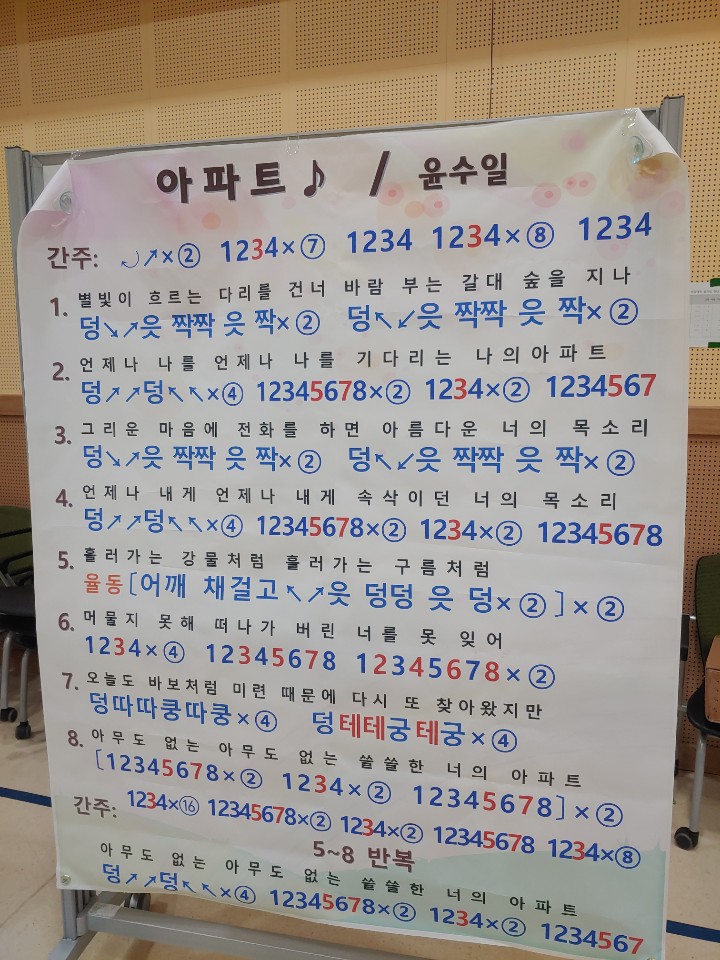 아파트♪ / 윤수일
간주: ◟↗×② 1234×⑦ 1234 1234×⑧ 1234
1. 별빛이 흐르는 다리를 건너 바람 부는 갈대 숲을 지나
덩↘↗읏 짝짝 읏 짝×② 덩↖↙읏 짝짝 읏 짝×②
2. 언제나 나를 언제나 나를 기다리는 나의아파트
덩↗↗덩↖↖×④ 12345678×② 1234×② 1234567
3. 그리운 마음에 전화를 하면 아름다운 너의 목소리
덩↘↗읏 짝짝 읏 짝×② 덩↖↙읏 짝짝 읏 짝×②
4. 언제나 내게 언제나 내게 속삭이던 너의 목소리
덩↗↗덩↖↖×④ 12345678×② 1234×② 12345678
5. 흘러가는 강물처럼 흘러가는 구름처럼
율동[어깨 채걸고↖↗읏 덩덩 읏 덩×②]×②
6. 머물지 못해 떠나가 버린 너를 못 잊어
1234×④ 12345678 12345678×②
7. 오늘도 바보처럼 미련 때문에 다시 또 찾아왔지만
덩따따쿵따쿵×④ 덩테테궁테궁×④
8. 아무도 없는 아무도 없는 쓸쓸한 너의 아파트
[12345678×② 1234×② 12345678]×②
간주: 1234×⑯ 12345678×② 1234×② 12345678 1234×⑧
5~8 반복
아무도 없는 아무도 없는 쓸쓸한 너의 아파트
덩↗↗덩↖↖×④ 12345678×② 1234×② 1234567